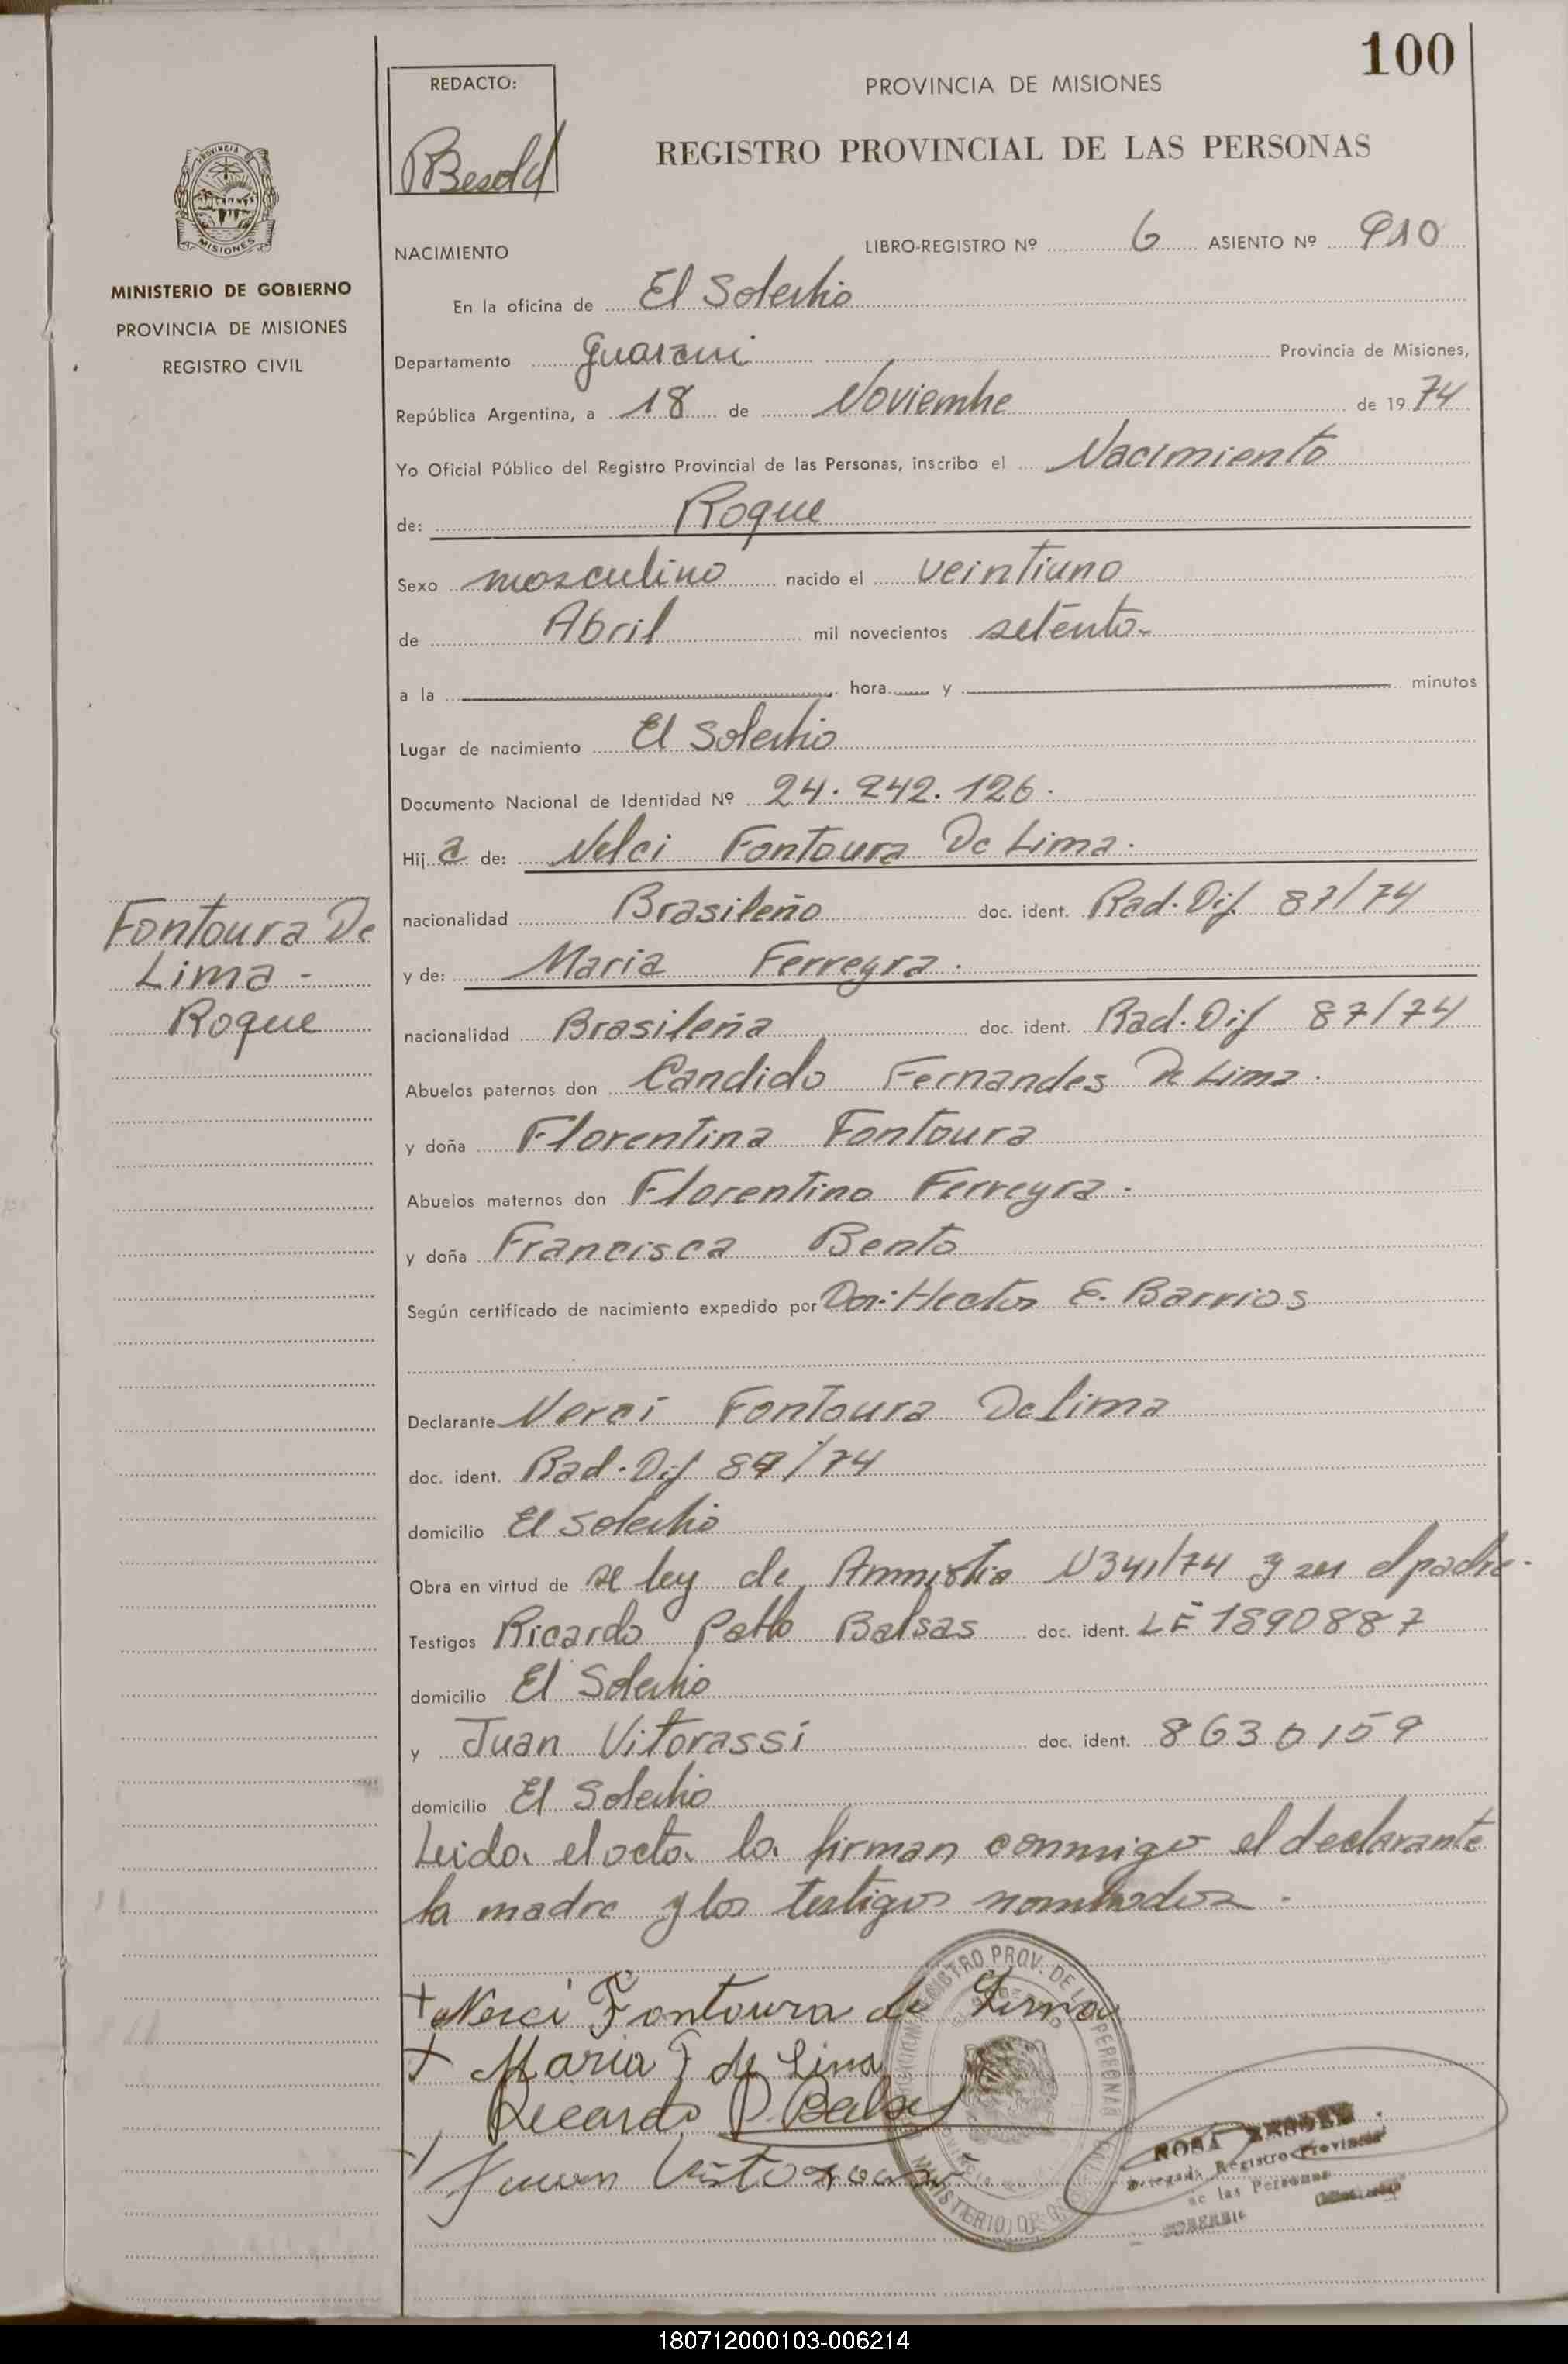 100
REDACTO:
PROVINCIA DE MISIONES
RBesold
REGISTRO PROVINCIAL DE LAS PERSONAS
NACIMIENTO
LIBRO-REGISTRO Nº 6 ASIENTO Nº 910
MINISTERIO DE GOBIERNO
PROVINCIA DE MISIONES
REGISTRO CIVIL
MISIONES
En la oficina de El Soberbio
Departamento Guarani Provincia de Misiones,
República Argentina, a 18 de Noviembre de 1974
Yo Oficial Público del Registro Provincial de las Personas, inscribo el Nacimiento
de: Roque
Sexo masculino nacido el veintiuno
de Abril mil novecientos setenta-
a la hora y minutos
Lugar de nacimiento El Soberbio
Documento Nacional de Identidad Nº 24.242.126.
Hij de: Nelci Fontoura De Lima.
nacionalidad Brasileño doc. ident. Rad. Dif 87/74
Fontoura De
Lima -
Roque
y de: Maria Ferreyra.
nacionalidad Brasileña doc. ident. Rad. Dif 87/74
Abuelos paternos don Candido Fernandes De Lima.
y doña Florentina Fontoura
Abuelos maternos don Florentino Ferreyra.
y doña Francisca Bento
Según certificado de nacimiento expedido por Hector E. Barrios
Declarante Nerci Fontoura De Lima
doc. ident. Rad. Dif 87/74
domicilio El Soberbio
Obra en virtud de se ley de Amnistia N341/74 y ser el padre.
Testigos Ricardo Pablo Balsas doc. ident. LE 1890887
domicilio El Soberbio
y Juan Vitorassi doc. ident. 8630159
domicilio El Soberbio
Leida el acta la firman conmigo el declarante
la madre y los testigos nombrados.
+ Nerci Fontoura de Lima
+ Maria F de Lima
Ricardo P. Balsas
Juan Vitorassi
REGISTRO PROV. DE LAS PERSONAS
MINISTERIO DE GOBIERNO
ROSA
Delegada Registro Provincial
de las Personas
SOBERBIO
180712000103-006214